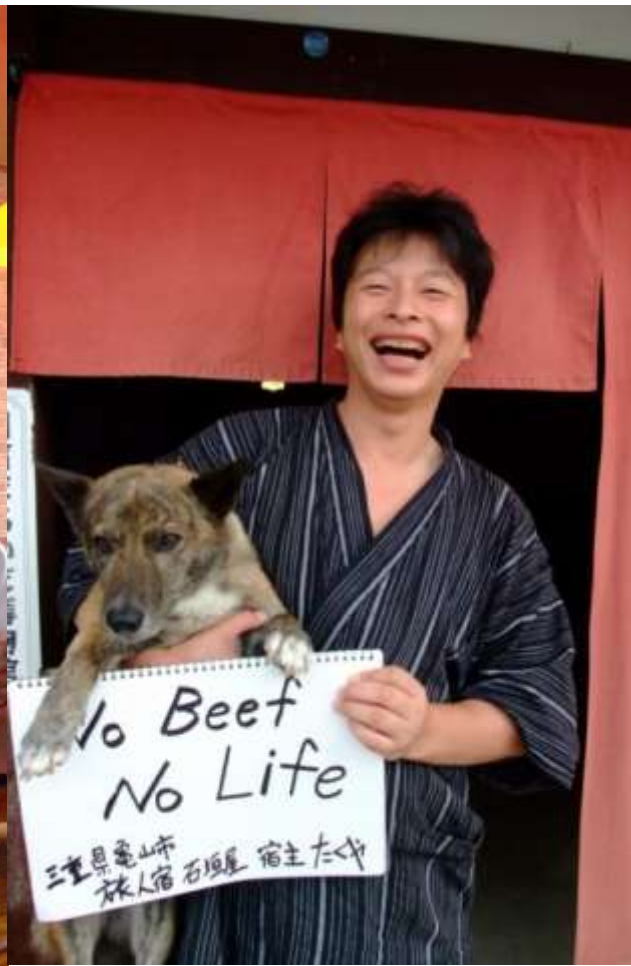 No Beef
No Life
三重県亀山市
旅人宿 石垣屋 宿主 たくや